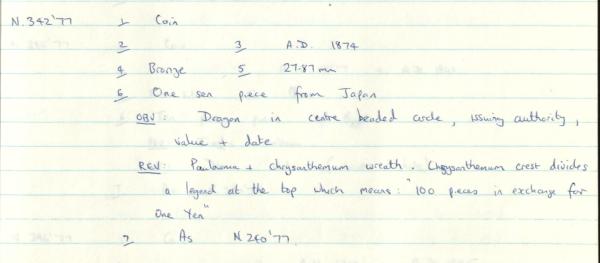 N.342'77 1 Coin
2 3 A.D. 1874
4 Bronze 5 27.87mm
6 One sen piece from Japan
OBV: Dragon in centre beaded circle, issuing authority,
value + date
REV: Paulawnia + chrysanthemum wreath. Chrysanthemum crest divides
a legend at the top which means: "100 pieces in exchange for
One Yen"
7 As N 240'77